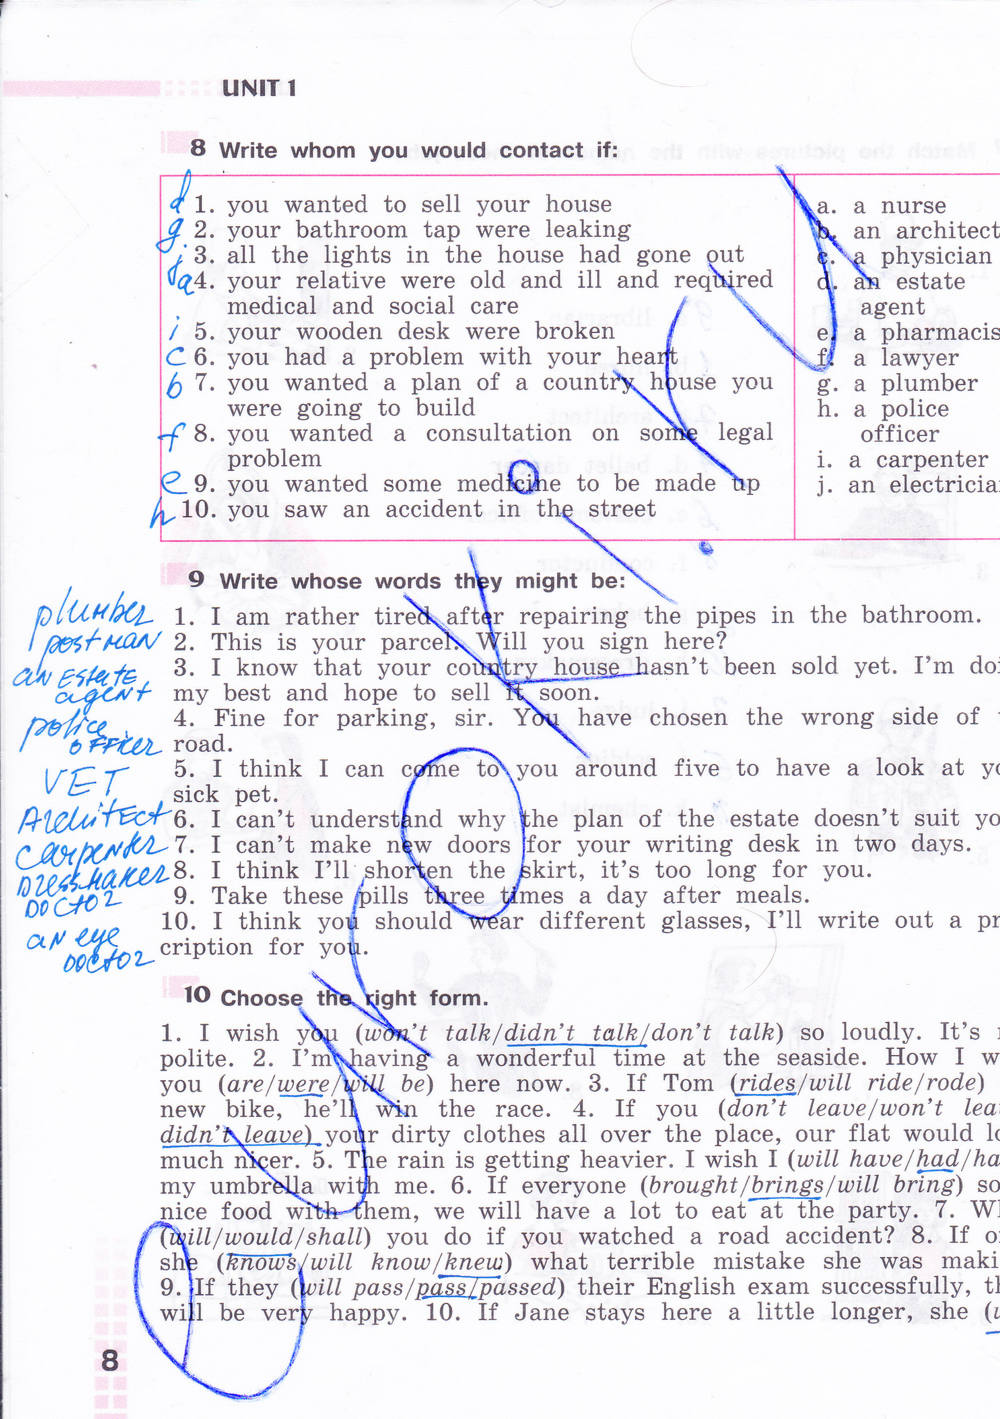 UNIT 1
8 Write whom you would contact if:
d 1. you wanted to sell your house
g. 2. your bathroom tap were leaking
j 3. all the lights in the house had gone out
a 4. your relative were old and ill and required
medical and social care
i 5. your wooden desk were broken
c 6. you had a problem with your heart
b 7. you wanted a plan of a country house you
were going to build
f 8. you wanted a consultation on some legal
problem
e 9. you wanted some medicine to be made up
h 10. you saw an accident in the street
a. a nurse
b. an architect
c. a physician
d. an estate
agent
e. a pharmacis
f. a lawyer
g. a plumber
h. a police
officer
i. a carpenter
j. an electricia
9 Write whose words they might be:
plumber
postman
an estate
agent
police
officer
VET
Architect
carpenter
Dressmaker
Doctor
an eye
Doctor
1. I am rather tired after repairing the pipes in the bathroom.
2. This is your parcel. Will you sign here?
3. I know that your country house hasn't been sold yet. I'm doi
my best and hope to sell it soon.
4. Fine for parking, sir. You have chosen the wrong side of
road.
5. I think I can come to you around five to have a look at yo
sick pet.
6. I can't understand why the plan of the estate doesn't suit yo
7. I can't make new doors for your writing desk in two days.
8. I think I'll shorten the skirt, it's too long for you.
9. Take these pills three times a day after meals.
10. I think you should wear different glasses, I'll write out a pr
cription for you.
10 Choose the right form.
1. I wish you (won't talk/didn't talk/don't talk) so loudly. It's
polite. 2. I'm having a wonderful time at the seaside. How I w
you (are/were/will be) here now. 3. If Tom (rides/will ride/rode)
new bike, he'll win the race. 4. If you (don't leave/won't lea
didn't leave) your dirty clothes all over the place, our flat would lo
much nicer. 5. The rain is getting heavier. I wish I (will have/had/ha
my umbrella with me. 6. If everyone (brought/brings/will bring) so
nice food with them, we will have a lot to eat at the party. 7. W
(will/would/shall) you do if you watched a road accident? 8. If o
she (knows/will know/knew) what terrible mistake she was maki
9. If they (will pass/pass/passed) their English exam successfully, th
will be very happy. 10. If Jane stays here a little longer, she (
8